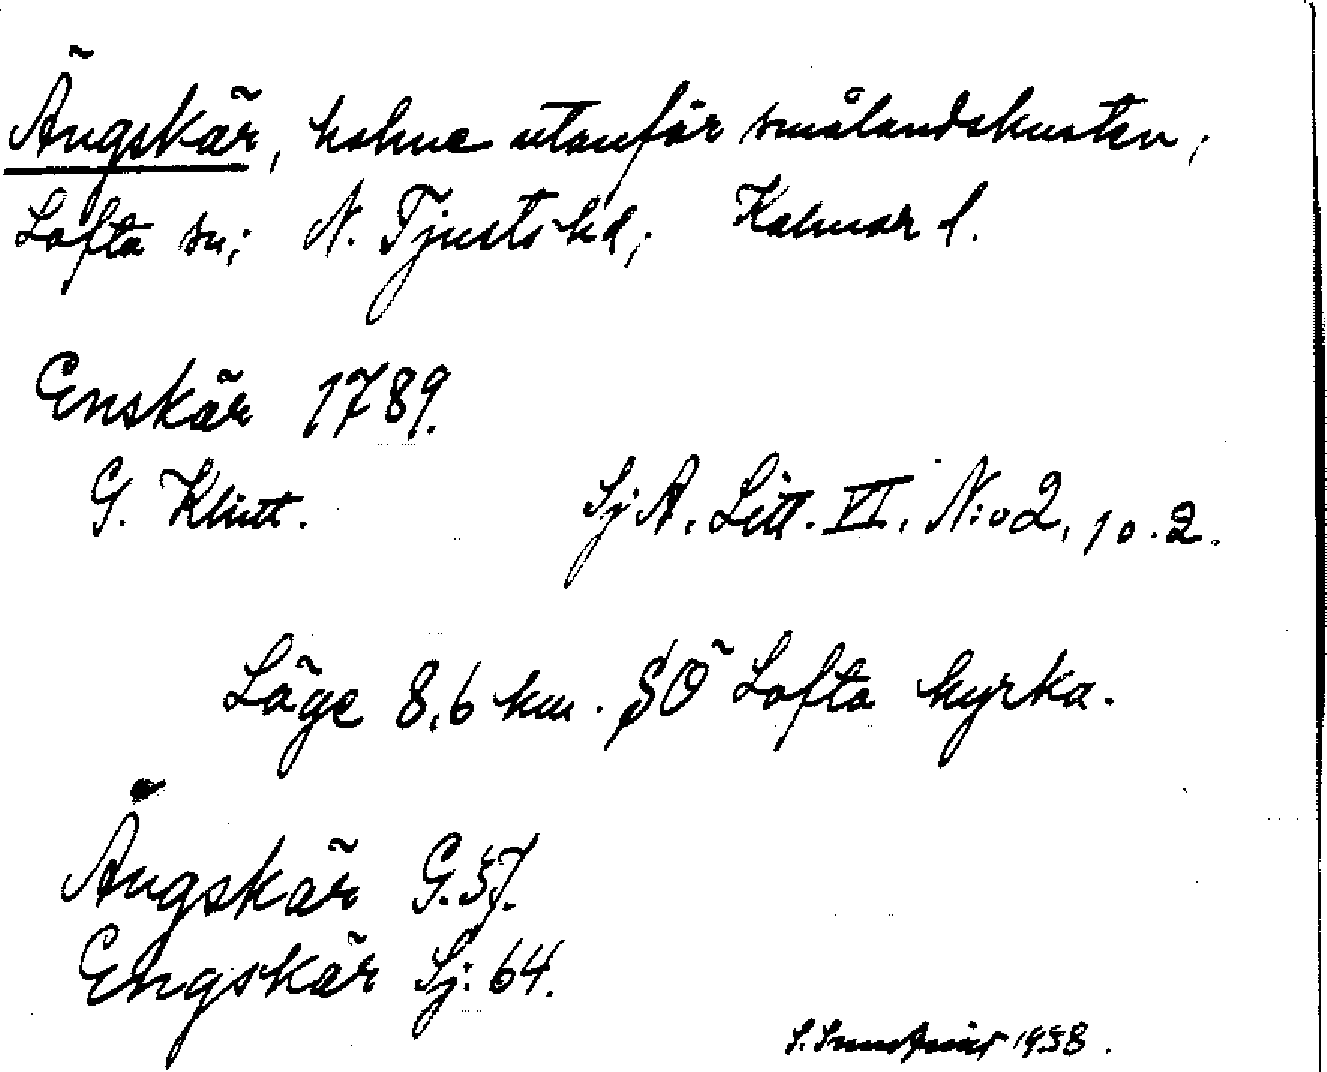 Ängskär, holme utanför smålandskusten,
Lofta sn; N. Tjusts hd; Kalmar l.
Enskär 1789.
G. Klint. Sj A. Litt. VI. N:o 2, 10.2.
Läge 8,6 km. SÖ Lofta kyrka.
Ängskär G.57.
Engskär Sj: 64.
S. 1938.